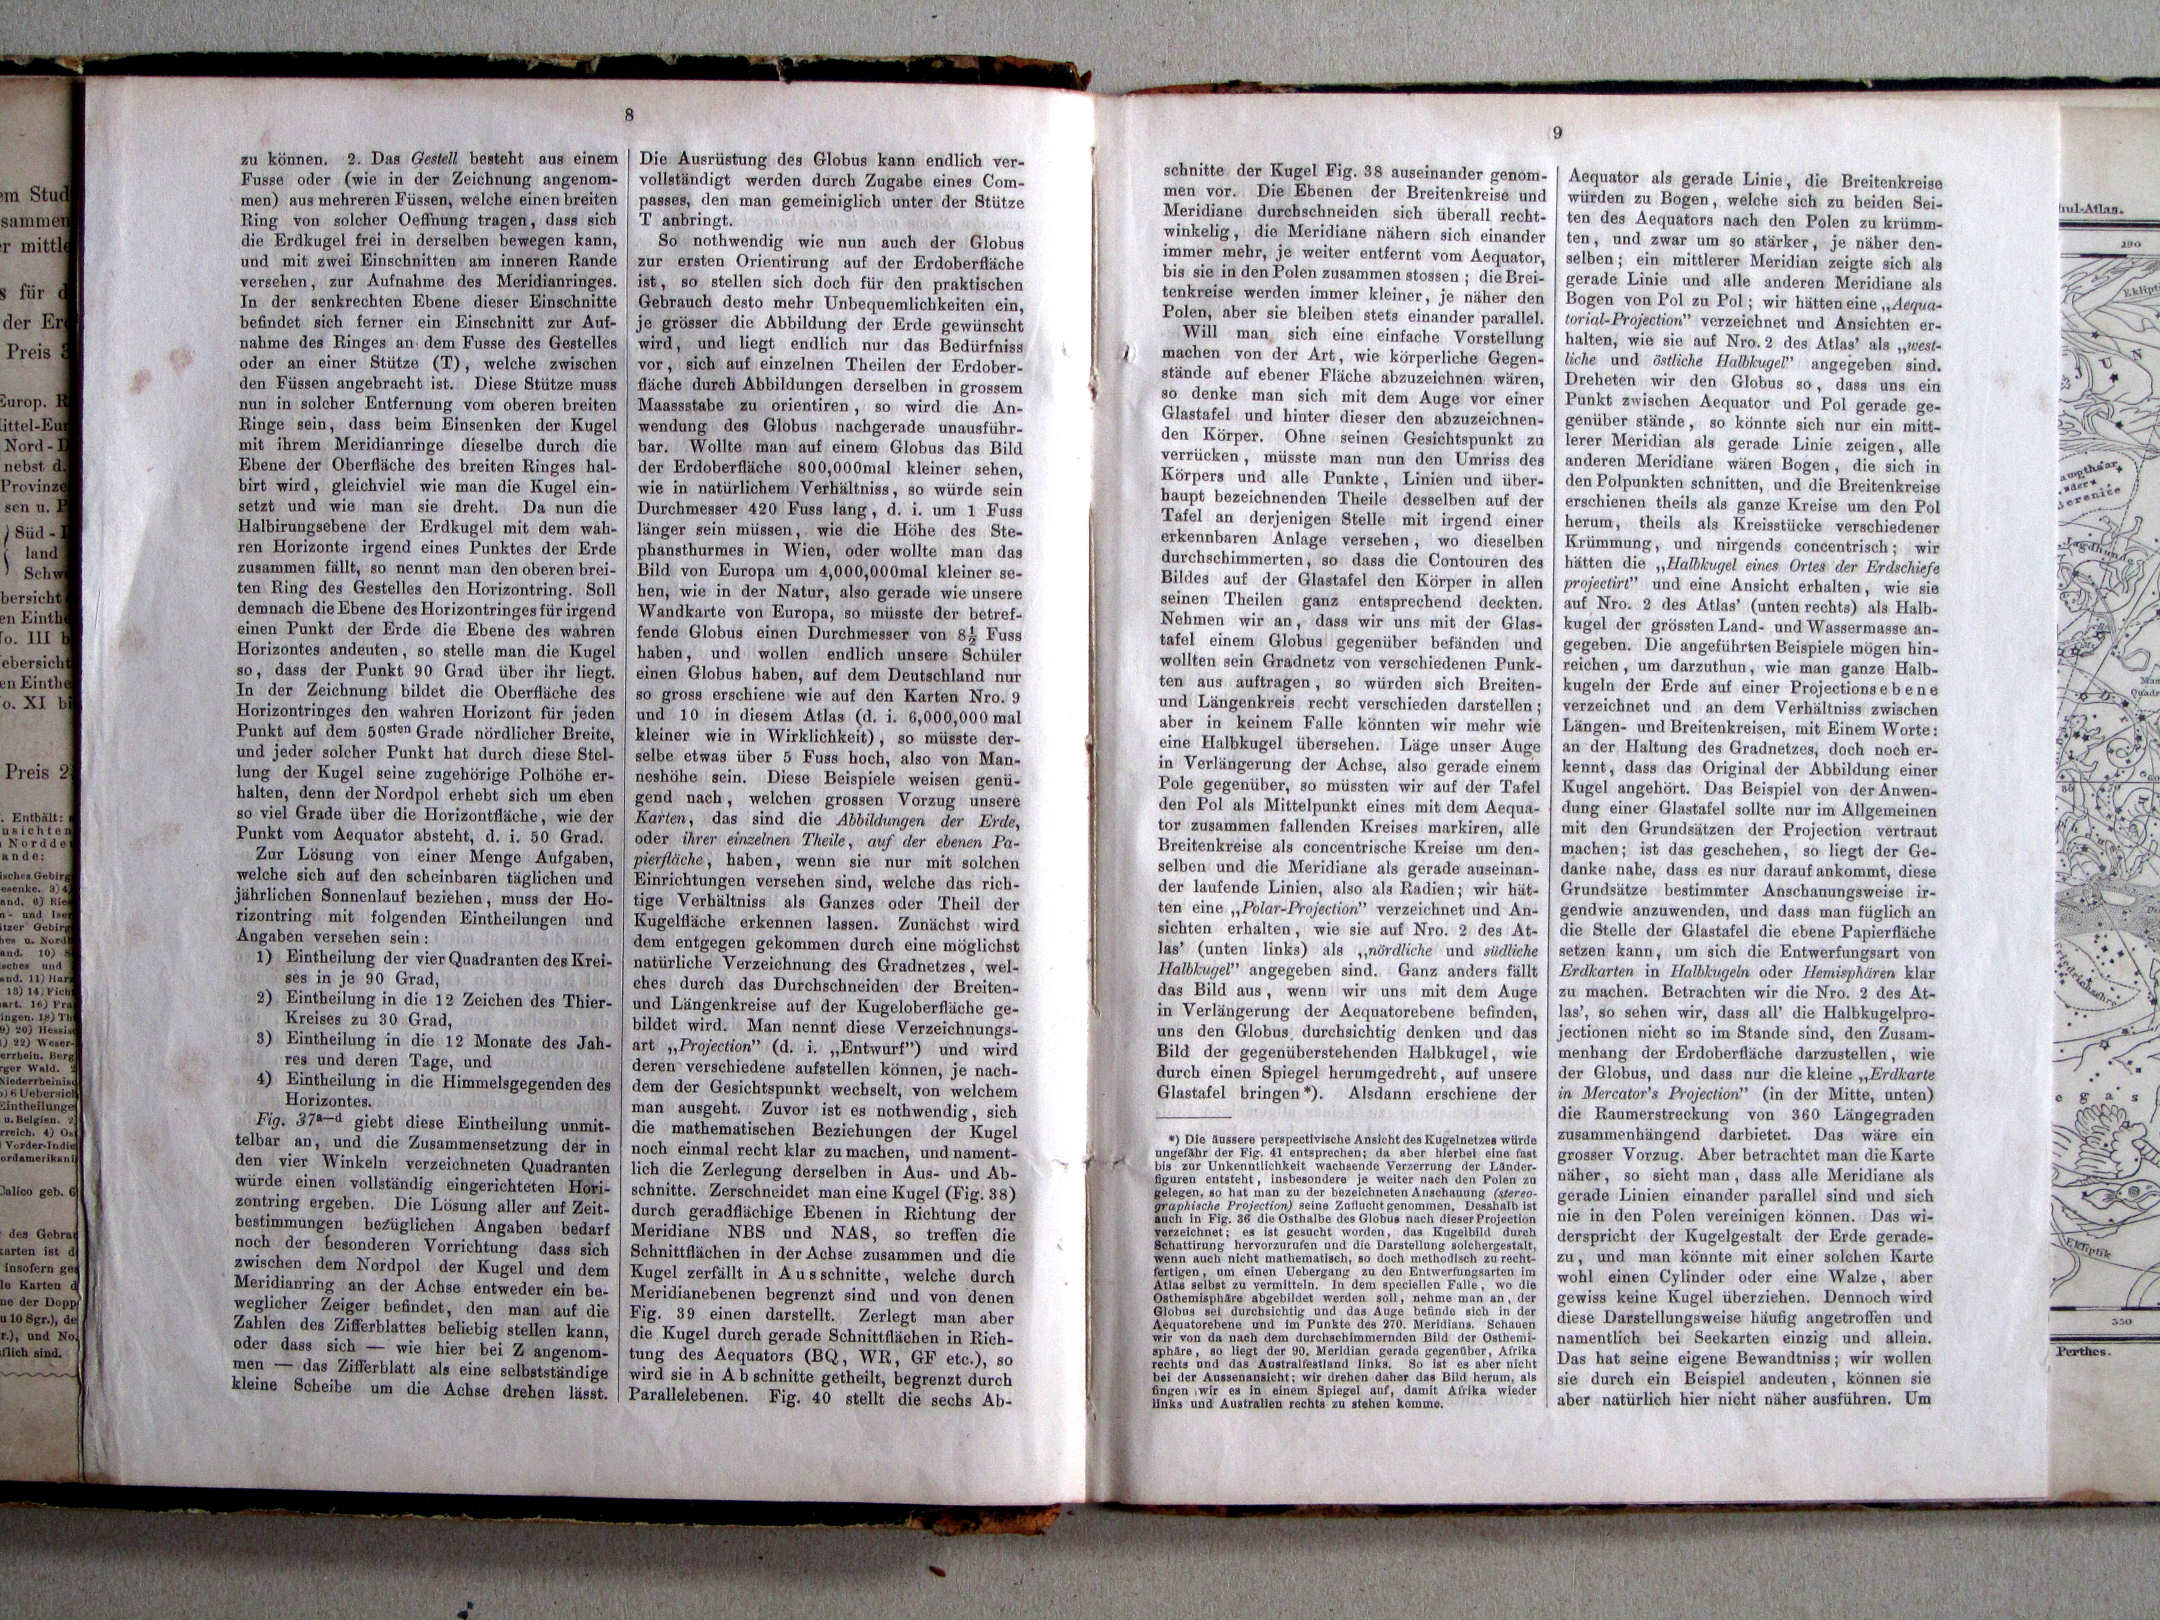 8
zu können. 2. Das Gestell besteht aus einem
Fusse oder (wie in der Zeichnung angenom-
men) aus mehreren Füssen, welche einen breiten
Ring von solcher Oeffnung tragen, dass sich
die Erdkugel frei in derselben bewegen kann,
und mit zwei Einschnitten am inneren Rande
versehen, zur Aufnahme des Meridianringes.
In der senkrechten Ebene dieser Einschnitte
befindet sich ferner ein Einschnitt zur Auf-
nahme des Ringes an dem Fusse des Gestelles
oder an einer Stütze (T), welche zwischen
den Füssen angebracht ist. Diese Stütze muss
nun in solcher Entfernung vom oberen breiten
Ringe sein, dass beim Einsenken der Kugel
mit ihrem Meridianringe dieselbe durch die
Ebene der Oberfläche des breiten Ringes hal-
birt wird, gleichviel wie man die Kugel ein-
setzt und wie man sie dreht. Da nun die
Halbirungsebene der Erdkugel mit dem wah-
ren Horizonte irgend eines Punktes der Erde
zusammen fällt, so nennt man den oberen brei-
ten Ring des Gestelles den Horizontring. Soll
demnach die Ebene des Horizontringes für irgend
einen Punkt der Erde die Ebene des wahren
Horizontes andeuten, so stelle man die Kugel
so, dass der Punkt 90 Grad über ihr liegt.
In der Zeichnung bildet die Oberfläche des
Horizontringes den wahren Horizont für jeden
Punkt auf dem 50sten Grade nördlicher Breite,
und jeder solcher Punkt hat durch diese Stel-
lung der Kugel seine zugehörige Polhöhe er-
halten, denn der Nordpol erhebt sich um eben
so viel Grade über die Horizontfläche, wie der
Punkt vom Aequator absteht, d. i. 50 Grad.
Zur Lösung von einer Menge Aufgaben,
welche sich auf den scheinbaren täglichen und
jährlichen Sonnenlauf beziehen, muss der Ho-
rizontring mit folgenden Eintheilungen und
Angaben versehen sein:
1) Eintheilung der vier Quadranten des Krei-
ses in je 90 Grad,
2) Eintheilung in die 12 Zeichen des Thier-
Kreises zu 30 Grad,
3) Eintheilung in die 12 Monate des Jah-
res und deren Tage, und
4) Eintheilung in die Himmelsgegenden des
Horizontes.
Fig. 37a—d giebt diese Eintheilung unmit-
telbar an, und die Zusammensetzung der in
den vier Winkeln verzeichneten Quadranten
würde einen vollständig eingerichteten Hori-
zontring ergeben. Die Lösung aller auf Zeit-
bestimmungen bezüglichen Angaben bedarf
noch der besonderen Vorrichtung dass sich
zwischen dem Nordpol der Kugel und dem
Meridianring an der Achse entweder ein be-
weglicher Zeiger befindet, den man auf die
Zahlen des Zifferblattes beliebig stellen kann,
oder dass sich — wie hier bei Z angenom-
men — das Zifferblatt als eine selbstständige
kleine Scheibe um die Achse drehen lässt.
Die Ausrüstung des Globus kann endlich ver-
vollständigt werden durch Zugabe eines Com-
passes, den man gemeiniglich unter der Stütze
T anbringt.
So nothwendig wie nun auch der Globus
zur ersten Orientirung auf der Erdoberfläche
ist, so stellen sich doch für den praktischen
Gebrauch desto mehr Unbequemlichkeiten ein,
je grösser die Abbildung der Erde gewünscht
wird, und liegt endlich nur das Bedürfniss
vor, sich auf einzelnen Theilen der Erdober-
fläche durch Abbildungen derselben in grossem
Maassstabe zu orientiren, so wird die An-
wendung des Globus nachgerade unausführ-
bar. Wollte man auf einem Globus das Bild
der Erdoberfläche 800,000mal kleiner sehen,
wie in natürlichem Verhältniss, so würde sein
Durchmesser 420 Fuss lang, d. i. um 1 Fuss
länger sein müssen, wie die Höhe des Ste-
phansthurmes in Wien, oder wollte man das
Bild von Europa um 4,000,000mal kleiner se-
hen, wie in der Natur, also gerade wie unsere
Wandkarte von Europa, so müsste der betref-
fende Globus einen Durchmesser von 8½ Fuss
haben, und wollen endlich unsere Schüler
einen Globus haben, auf dem Deutschland nur
so gross erschiene wie auf den Karten Nro. 9
und 10 in diesem Atlas (d. i. 6,000,000 mal
kleiner wie in Wirklichkeit), so müsste der-
selbe etwas über 5 Fuss hoch, also von Man-
neshöhe sein. Diese Beispiele weisen genü-
gend nach, welchen grossen Vorzug unsere
Karten, das sind die Abbildungen der Erde,
oder ihrer einzelnen Theile, auf der ebenen Pa-
pierfläche, haben, wenn sie nur mit solchen
Einrichtungen versehen sind, welche das rich-
tige Verhältniss als Ganzes oder Theil der
Kugelfläche erkennen lassen. Zunächst wird
dem entgegen gekommen durch eine möglichst
natürliche Verzeichnung des Gradnetzes, wel-
ches durch das Durchschneiden der Breiten-
und Längenkreise auf der Kugeloberfläche ge-
bildet wird. Man nennt diese Verzeichnungs-
art „Projection” (d. i. „Entwurf”) und wird
deren verschiedene aufstellen können, je nach-
dem der Gesichtspunkt wechselt, von welchem
man ausgeht. Zuvor ist es nothwendig, sich
die mathematischen Beziehungen der Kugel
noch einmal recht klar zu machen, und nament-
lich die Zerlegung derselben in Aus- und Ab-
schnitte. Zerschneidet man eine Kugel (Fig. 38)
durch geradflächige Ebenen in Richtung der
Meridiane NBS und NAS, so treffen die
Schnittflächen in der Achse zusammen und die
Kugel zerfällt in Ausschnitte, welche durch
Meridianebenen begrenzt sind und von denen
Fig. 39 einen darstellt. Zerlegt man aber
die Kugel durch gerade Schnittflächen in Rich-
tung des Aequators (BQ, WR, GF etc.), so
wird sie in Abschnitte getheilt, begrenzt durch
Parallelebenen. Fig. 40 stellt die sechs Ab-
9
schnitte der Kugel Fig. 38 auseinander genom-
men vor. Die Ebenen der Breitenkreise und
Meridiane durchschneiden sich überall recht-
winkelig, die Meridiane nähern sich einander
immer mehr, je weiter entfernt vom Aequator,
bis sie in den Polen zusammen stossen; die Brei-
tenkreise werden immer kleiner, je näher den
Polen, aber sie bleiben stets einander parallel.
Will man sich eine einfache Vorstellung
machen von der Art, wie körperliche Gegen-
stände auf ebener Fläche abzuzeichnen wären,
so denke man sich mit dem Auge vor einer
Glastafel und hinter dieser den abzuzeichnen-
den Körper. Ohne seinen Gesichtspunkt zu
verrücken, müsste man nun den Umriss des
Körpers und alle Punkte, Linien und über-
haupt bezeichnenden Theile desselben auf der
Tafel an derjenigen Stelle mit irgend einer
erkennbaren Anlage versehen, wo dieselben
durchschimmerten, so dass die Contouren des
Bildes auf der Glastafel den Körper in allen
seinen Theilen ganz entsprechend deckten.
Nehmen wir an, dass wir uns mit der Glas-
tafel einem Globus gegenüber befänden und
wollten sein Gradnetz von verschiedenen Punk-
ten aus auftragen, so würden sich Breiten-
und Längenkreis recht verschieden darstellen;
aber in keinem Falle könnten wir mehr wie
eine Halbkugel übersehen. Läge unser Auge
in Verlängerung der Achse, also gerade einem
Pole gegenüber, so müssten wir auf der Tafel
den Pol als Mittelpunkt eines mit dem Aequa-
tor zusammen fallenden Kreises markiren, alle
Breitenkreise als concentrische Kreise um den-
selben und die Meridiane als gerade auseinan-
der laufende Linien, also als Radien; wir hät-
ten eine „Polar-Projection” verzeichnet und An-
sichten erhalten, wie sie auf Nro. 2 des At-
las’ (unten links) als „nördliche und südliche
Halbkugel” angegeben sind. Ganz anders fällt
das Bild aus, wenn wir uns mit dem Auge
in Verlängerung der Aequatorebene befinden,
uns den Globus durchsichtig denken und das
Bild der gegenüberstehenden Halbkugel, wie
durch einen Spiegel herumgedreht, auf unsere
Glastafel bringen*). Alsdann erschiene der
*) Die äussere perspectivische Ansicht des Kugelnetzes würde
ungefähr der Fig. 41 entsprechen; da aber hierbei eine fast
bis zur Unkenntlichkeit wachsende Verzerrung der Länder-
figuren entsteht, insbesondere je weiter nach den Polen zu
gelegen, so hat man zu der bezeichneten Anschauung (stereo-
graphische Projection) seine Zuflucht genommen. Desshalb ist
auch in Fig. 36 die Osthalbe des Globus nach dieser Projection
verzeichnet; es ist gesucht worden, das Kugelbild durch
Schattirung hervorzurufen und die Darstellung solchergestalt,
wenn auch nicht mathematisch, so doch methodisch zu recht-
fertigen, um einen Uebergang zu den Entwerfungsarten im
Atlas selbst zu vermitteln. In dem speciellen Falle, wo die
Osthemisphäre abgebildet werden soll, nehme man an, der
Globus sei durchsichtig und das Auge befinde sich in der
Aequatorebene und im Punkte des 270. Meridians. Schauen
wir von da nach dem durchschimmernden Bild der Osthemi-
sphäre, so liegt der 90. Meridian gerade gegenüber, Afrika
rechts und das Australfestland links. So ist es aber nicht
bei der Aussenansicht; wir drehen daher das Bild herum, als
fingen wir es in einem Spiegel auf, damit Afrika wieder
links und Australien rechts zu stehen komme.
Aequator als gerade Linie, die Breitenkreise
würden zu Bogen, welche sich zu beiden Sei-
ten des Aequators nach den Polen zu krümm-
ten, und zwar um so stärker, je näher den-
selben; ein mittlerer Meridian zeigte sich als
gerade Linie und alle anderen Meridiane als
Bogen von Pol zu Pol; wir hätten eine „Aequa-
torial-Projection” verzeichnet und Ansichten er-
halten, wie sie auf Nro. 2 des Atlas’ als „west-
liche und östliche Halbkugel” angegeben sind.
Dreheten wir den Globus so, dass uns ein
Punkt zwischen Aequator und Pol gerade ge-
genüber stände, so könnte sich nur ein mitt-
lerer Meridian als gerade Linie zeigen, alle
anderen Meridiane wären Bogen, die sich in
den Polpunkten schnitten, und die Breitenkreise
erschienen theils als ganze Kreise um den Pol
herum, theils als Kreisstücke verschiedener
Krümmung, und nirgends concentrisch; wir
hätten die „Halbkugel eines Ortes der Erdschiefe
projectirt” und eine Ansicht erhalten, wie sie
auf Nro. 2 des Atlas’ (unten rechts) als Halb-
kugel der grössten Land- und Wassermasse an-
gegeben. Die angeführten Beispiele mögen hin-
reichen, um darzuthun, wie man ganze Halb-
kugeln der Erde auf einer Projectionsebene
verzeichnet und an dem Verhältniss zwischen
Längen- und Breitenkreisen, mit Einem Worte:
an der Haltung des Gradnetzes, doch noch er-
kennt, dass das Original der Abbildung einer
Kugel angehört. Das Beispiel von der Anwen-
dung einer Glastafel sollte nur im Allgemeinen
mit den Grundsätzen der Projection vertraut
machen; ist das geschehen, so liegt der Ge-
danke nahe, dass es nur darauf ankommt, diese
Grundsätze bestimmter Anschauungsweise ir-
gendwie anzuwenden, und dass man füglich an
die Stelle der Glastafel die ebene Papierfläche
setzen kann, um sich die Entwerfungsart von
Erdkarten in Halbkugeln oder Hemisphären klar
zu machen. Betrachten wir die Nro. 2 des At-
las’, so sehen wir, dass all’ die Halbkugelpro-
jectionen nicht so im Stande sind, den Zusam-
menhang der Erdoberfläche darzustellen, wie
der Globus, und dass nur die kleine „Erdkarte
in Mercator’s Projection” (in der Mitte, unten)
die Raumerstreckung von 360 Längegraden
zusammenhängend darbietet. Das wäre ein
grosser Vorzug. Aber betrachtet man die Karte
näher, so sieht man, dass alle Meridiane als
gerade Linien einander parallel sind und sich
nie in den Polen vereinigen können. Das wi-
derspricht der Kugelgestalt der Erde gerade-
zu, und man könnte mit einer solchen Karte
wohl einen Cylinder oder eine Walze, aber
gewiss keine Kugel überziehen. Dennoch wird
diese Darstellungsweise häufig angetroffen und
namentlich bei Seekarten einzig und allein.
Das hat seine eigene Bewandtniss; wir wollen
sie durch ein Beispiel andeuten, können sie
aber natürlich hier nicht näher ausführen. Um
hul-Atlas.
190
Jagdhund
Ekliptik
350
Perthes.